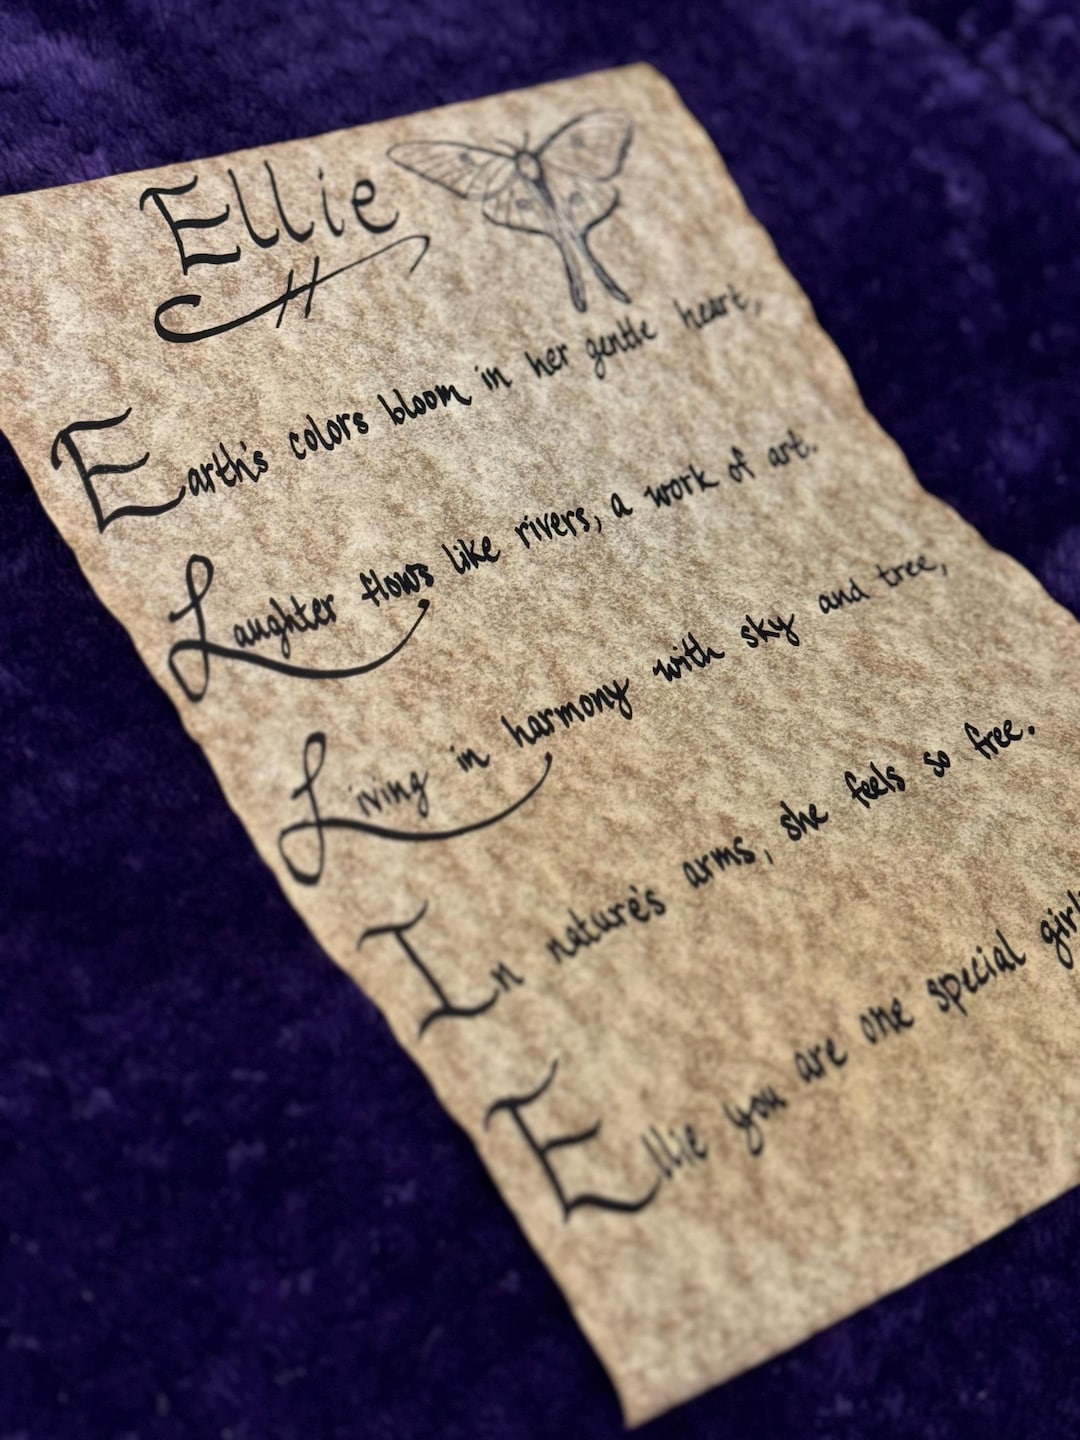 Ellie
Earth's colors bloom in her gentle heart,
Laughter flows like rivers, a work of art.
Living in harmony with sky and tree,
In nature's arms, she feels so free.
Ellie you are one special girl